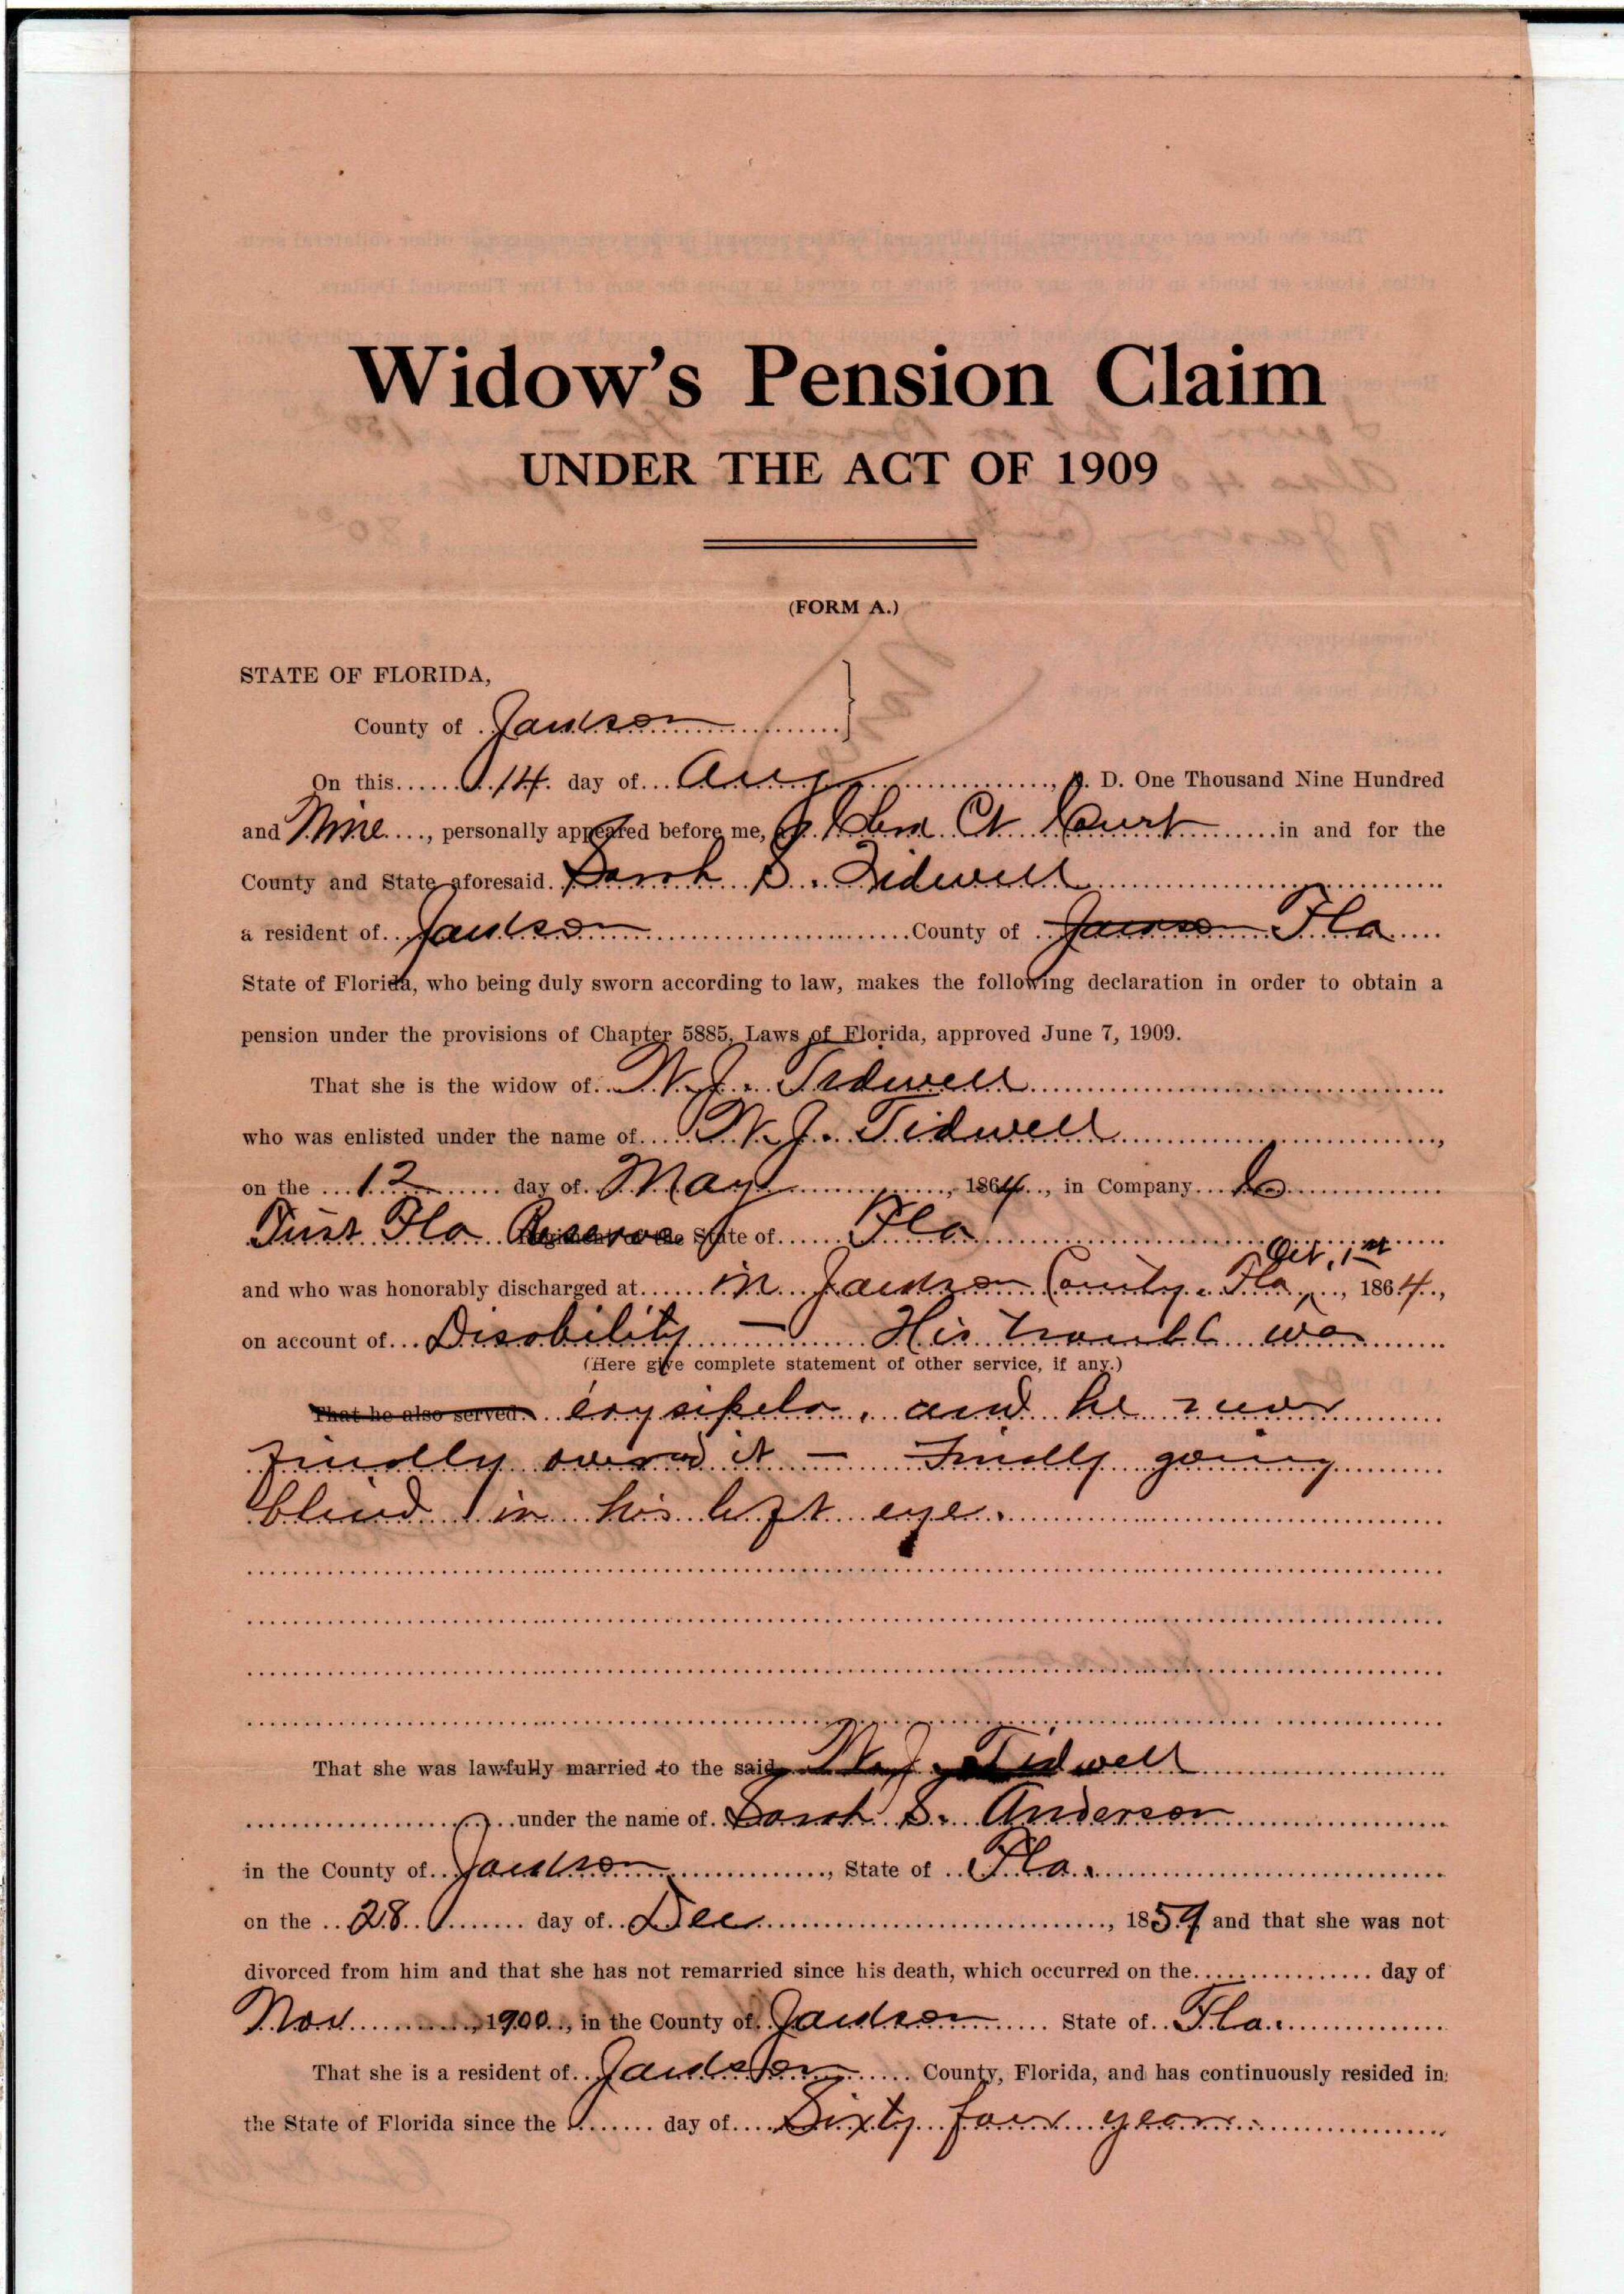 Widow's Pension Claim
UNDER THE ACT OF 1909
(FORM A.)
STATE OF FLORIDA,
County of Jackson
On this 14 day of Aug, A. D. One Thousand Nine Hundred
and Nine, personally appeared before me, Court in and for the
County and State aforesaid. Sarah S. Tidwell
a resident of Jackson County of Jackson Fla
State of Florida, who being duly sworn according to law, makes the following declaration in order to obtain a
pension under the provisions of Chapter 5885, Laws of Florida, approved June 7, 1909.
That she is the widow of W. J. Tidwell
who was enlisted under the name of W. J. Tidwell,
on the 12 day of May, 1864, in Company
First Fla Reserve Regiment of the State of Fla
and who was honorably discharged at in Jackson County, Fla, Oct. 1st, 1864,
on account of Disability — His trouble was
(Here give complete statement of other service, if any.)
That he also served erysipelas, and he never
finally it — Finally going
blind in his left eye.
That she was lawfully married to the said W. J. Tidwell
under the name of Sarah S. Anderson
in the County of Jackson, State of Fla.
on the 28 day of Dec, 1859, and that she was not
divorced from him and that she has not remarried since his death, which occurred on the day of
Nov, 1900, in the County of Jackson State of Fla.
That she is a resident of Jackson County, Florida, and has continuously resided in
the State of Florida since the day of Sixty four years